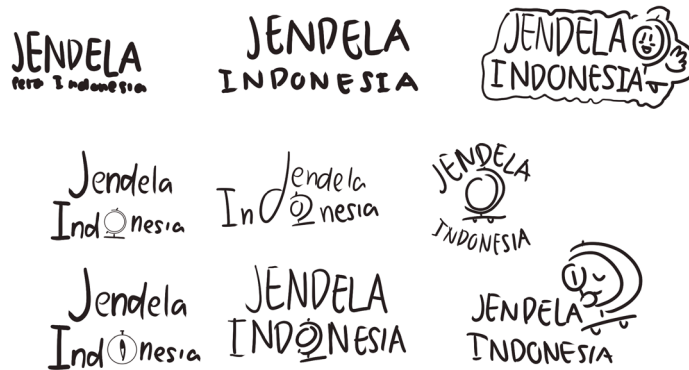 JENDELA
Peta Indonesia
JENDELA
INDONESIA
JENDELA
INDONESIA
Jendela
Indonesia
Jendela
Indonesia
JENDELA
INDONESIA
Jendela
Indonesia
JENDELA
INDONESIA
JENDELA
INDONESIA